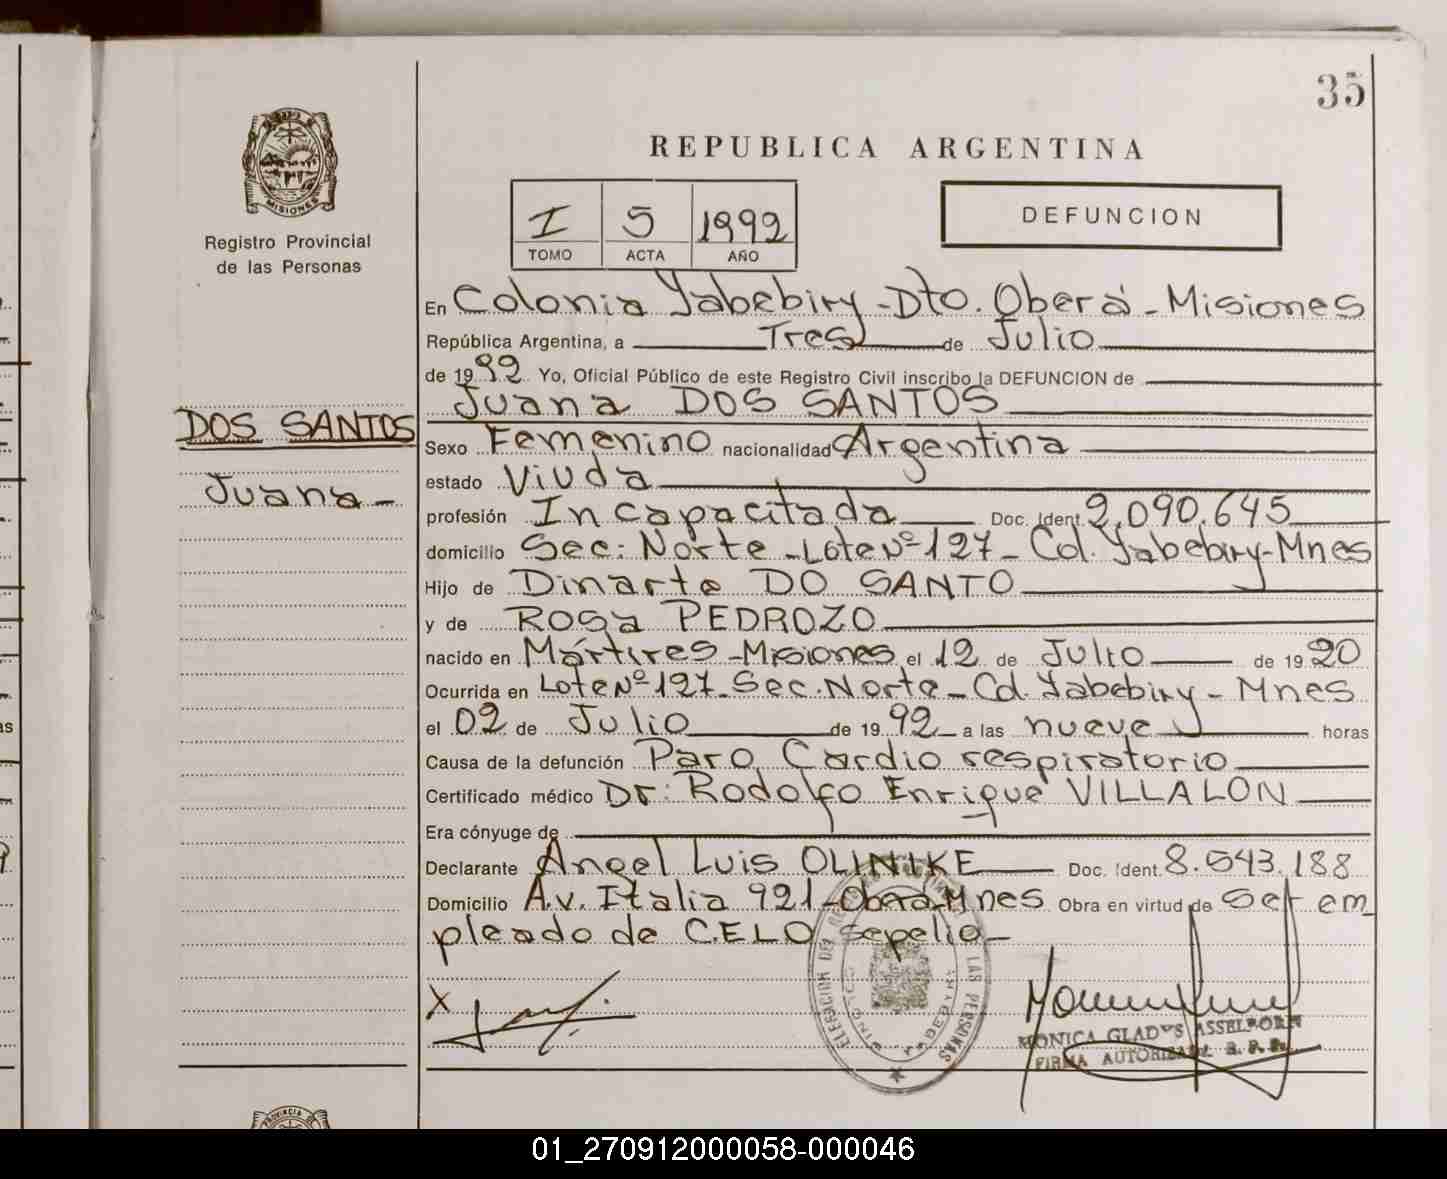 35
REPUBLICA ARGENTINA
MISIONES
Registro Provincial
de las Personas
I 5 1992
TOMO ACTA AÑO
DEFUNCION
En Colonia Yabebiry - Dto. Oberá - Misiones
República Argentina, a Tres de Julio
de 1992 Yo, Oficial Público de este Registro Civil inscribo la DEFUNCION de
Juana DOS SANTOS
DOS SANTOS
Juana -
Sexo Femenino nacionalidad Argentina
estado Viuda
profesión Incapacitada Doc. Ident. 2.090.645
domicilio Sec: Norte - Lote Nº 127 - Col. Yabebiry - Mnes
Hijo de Dinarte DO SANTO
y de Rosa PEDROZO
nacido en Mártires - Misiones el 12 de Julio de 1920
Ocurrida en Lote Nº 127 - Sec. Norte - Col. Yabebiry - Mnes
el 02 de Julio de 1992 a las nueve horas
Causa de la defunción Paro Cardio respiratorio
Certificado médico Dr: Rodolfo Enrique VILLALON
Era cónyuge de
Declarante Angel Luis OLINIKE Doc. Ident. 8.543.188
Domicilio Av. Italia 921 - Oberá - Mnes Obra en virtud de ser em
pleado de C.E.L.O sepelio -
X
LAS PERSONAS
MONICA GLADYS ASSELBORN
FIRMA AUTORIZADA R. P. P.
01_270912000058-000046